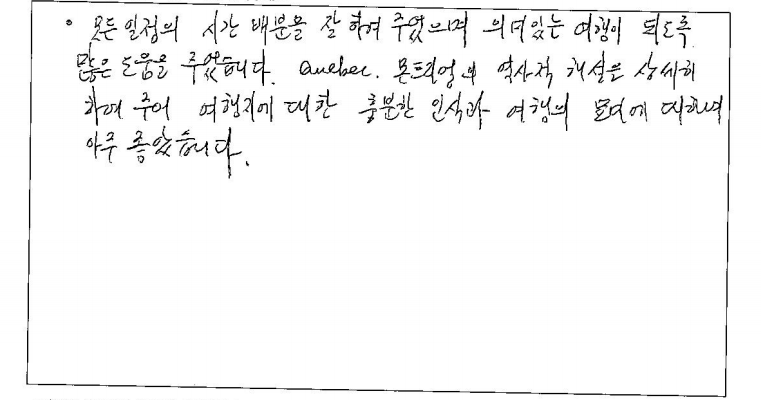 • 모든 일정의 시간 배분을 잘 하여 주었으며 의미있는 여행이 되도록
많은 도움을 주었습니다. Quebec. 몬트리얼의 역사적 해설은 상세히
하여 주어 여행지에 대한 충분한 인식과 여행의 묘미에 대하여
아주 좋았습니다.